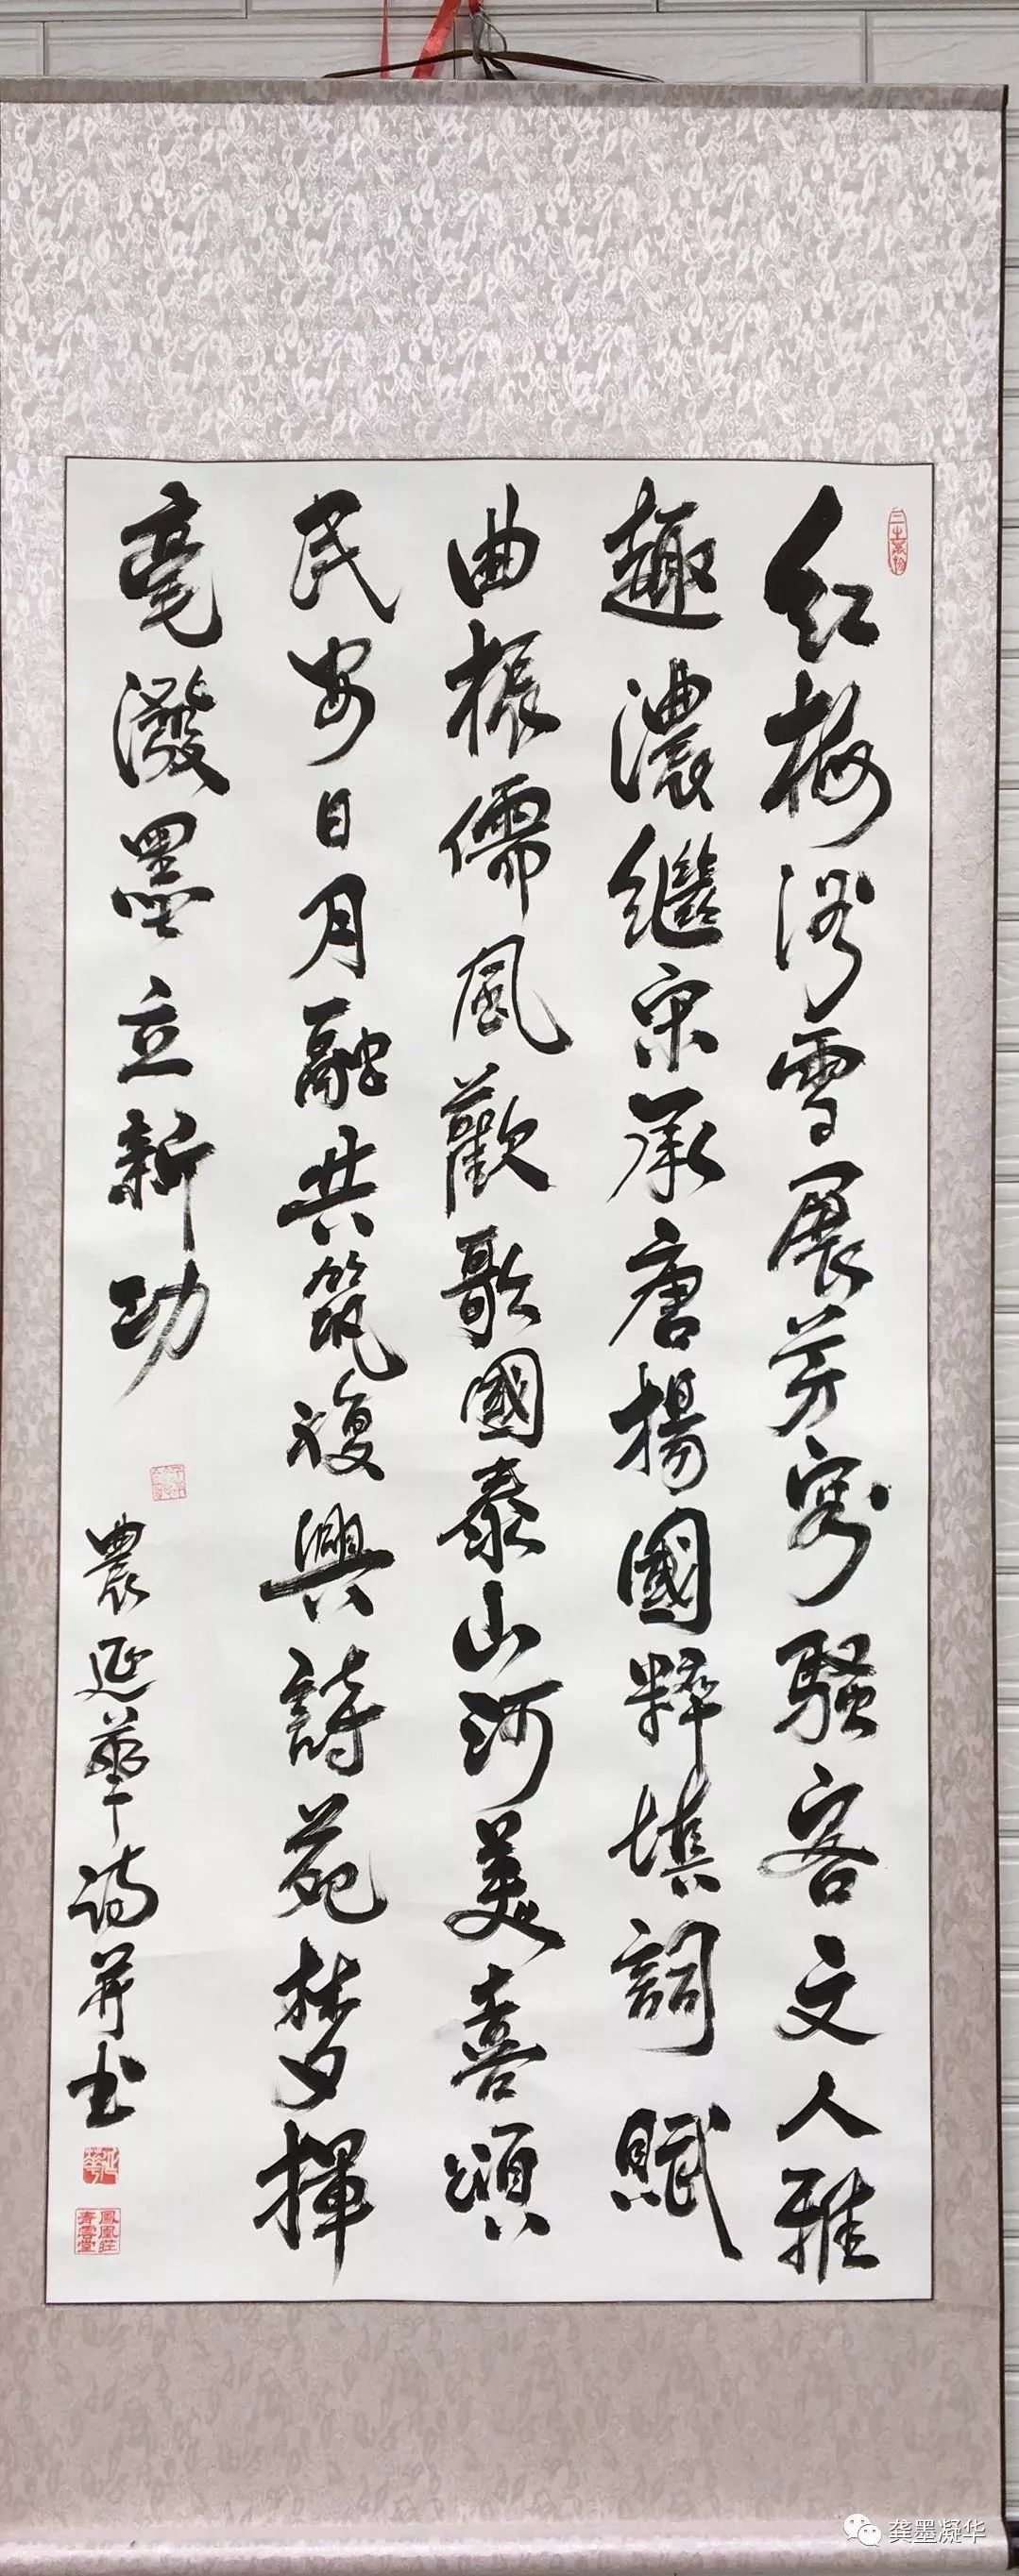 红梅浴雪展芳容骚客文人雅
趣濃繼宋承唐揚國粹填詞賦
曲振儒風歡歌國泰山河美喜頌
民安日月融共筑復興詩苑梦揮
毫潑墨立新功
農延華诗并书
延華
鳳凰莊青雲堂
龚墨凝华